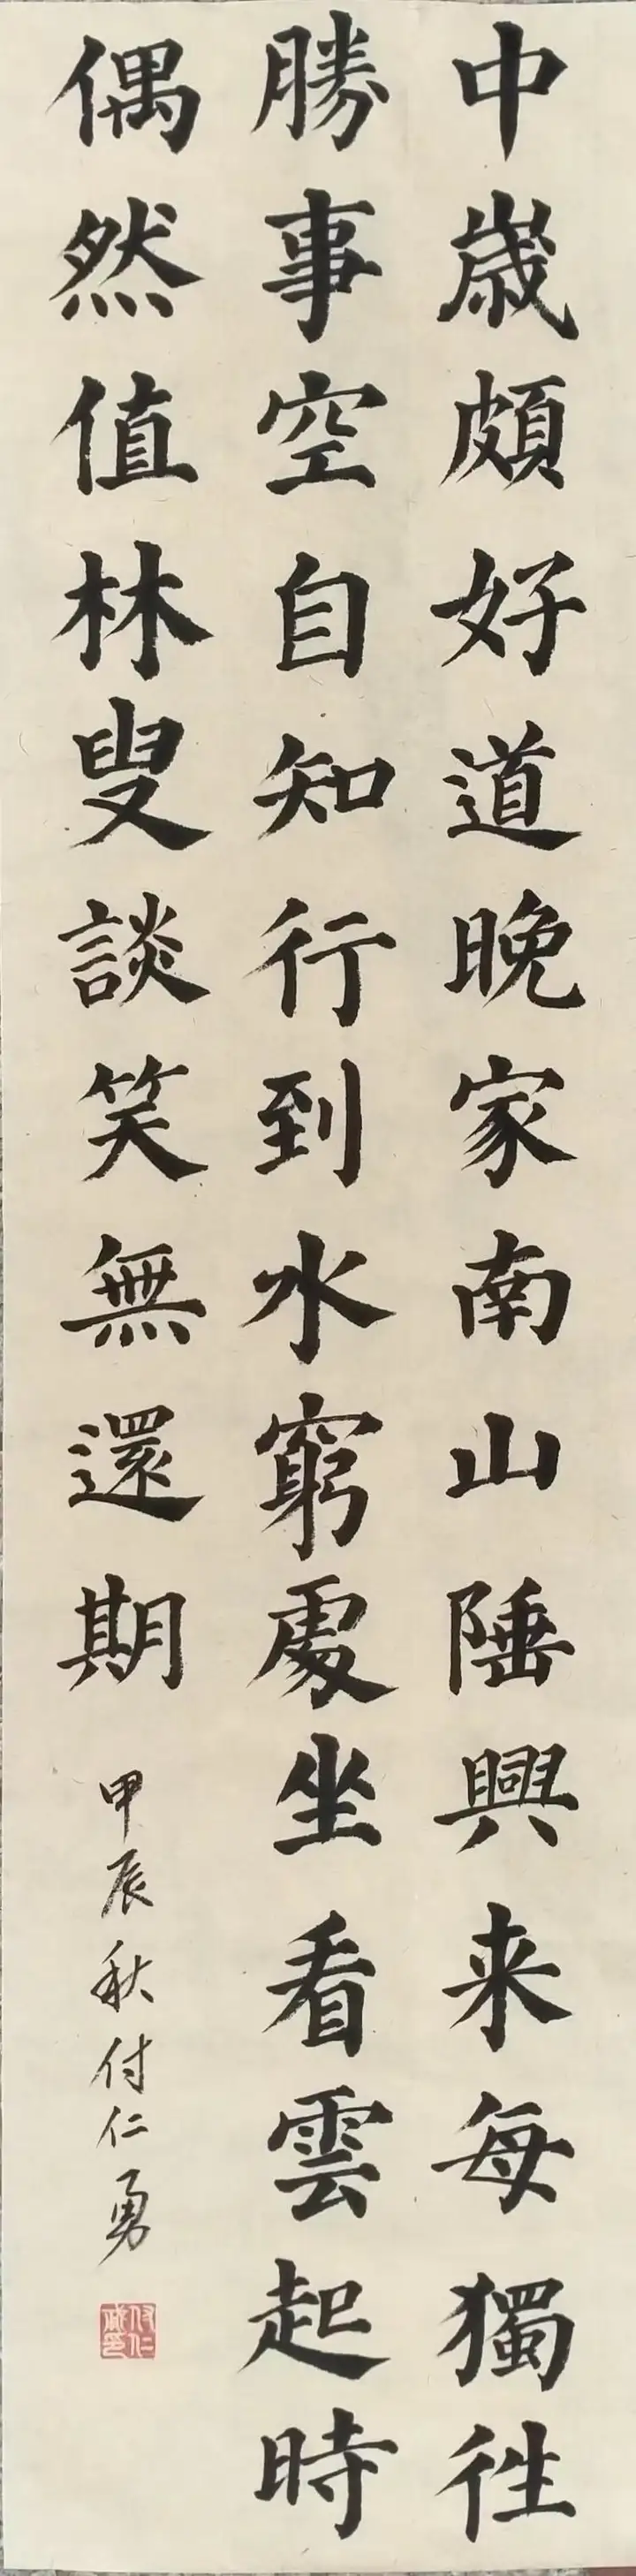 中歲頗好道晚家南山陲興来每獨往
勝事空自知行到水窮處坐看雲起時
偶然值林叟談笑無還期
甲辰秋付仁勇